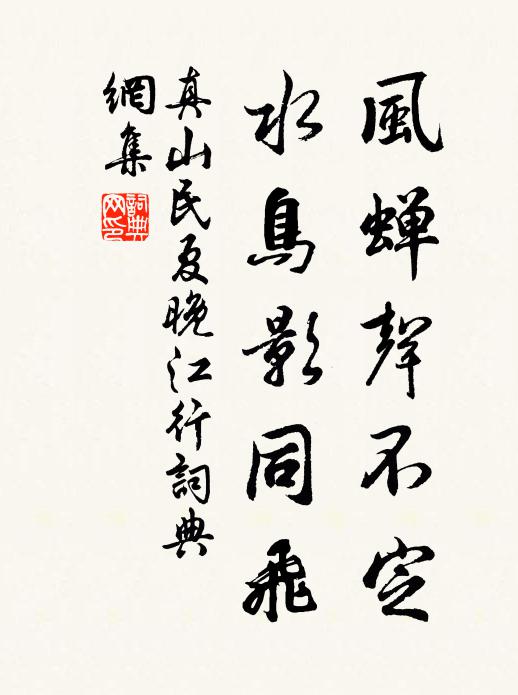 風蝉聲不定
水鳥影同飛
真山民夏晚江行詞典
網集
詞典网印